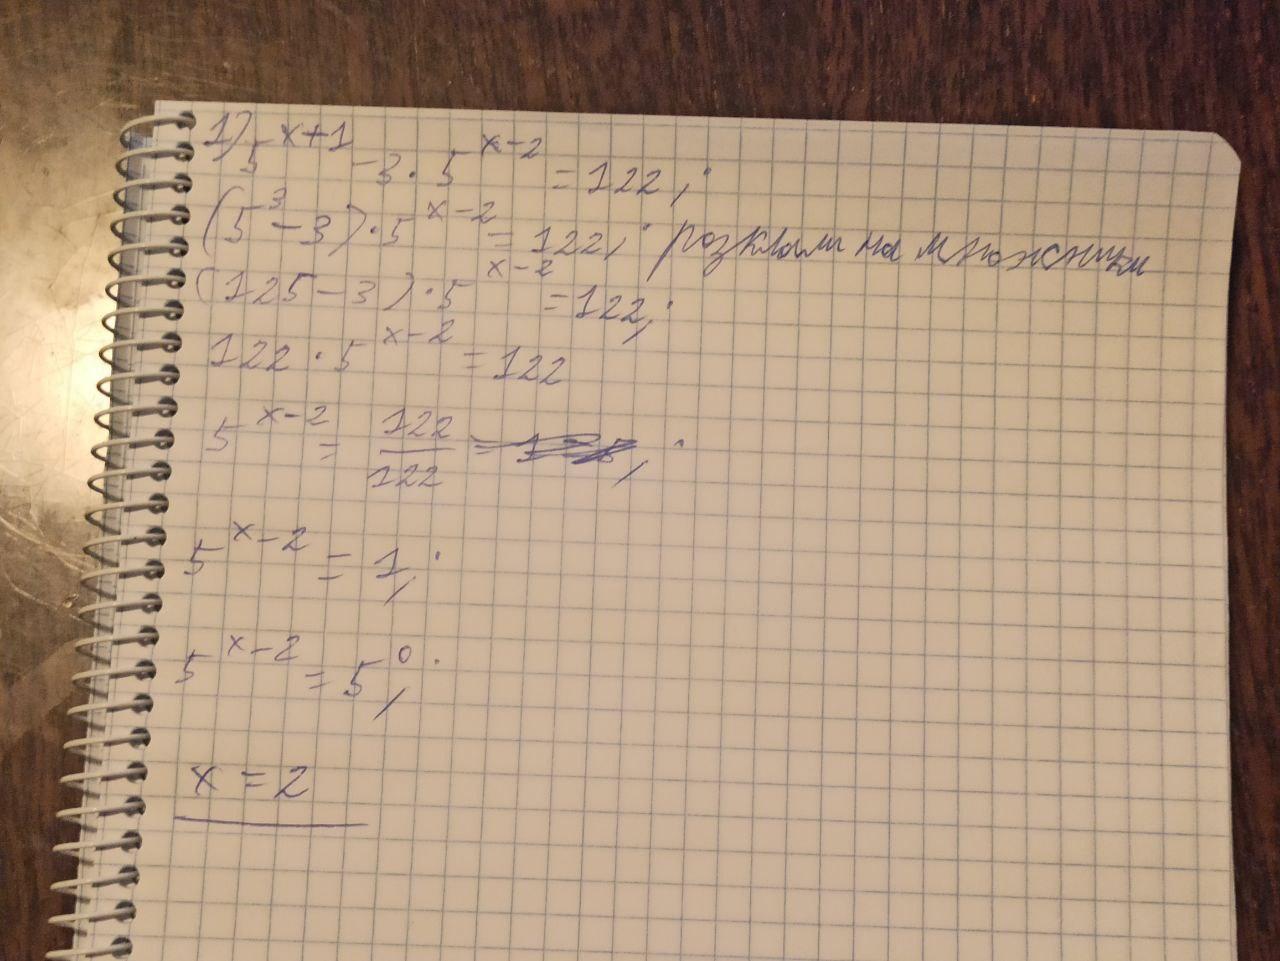 1) 5^(x+1) - 3 · 5^(x-2) = 122;
(5^3 - 3) · 5^(x-2) = 122; розклали на множники
(125 - 3) · 5^(x-2) = 122;
122 · 5^(x-2) = 122
5^(x-2) = 122/122 ;
5^(x-2) = 1;
5^(x-2) = 5^0;
x = 2